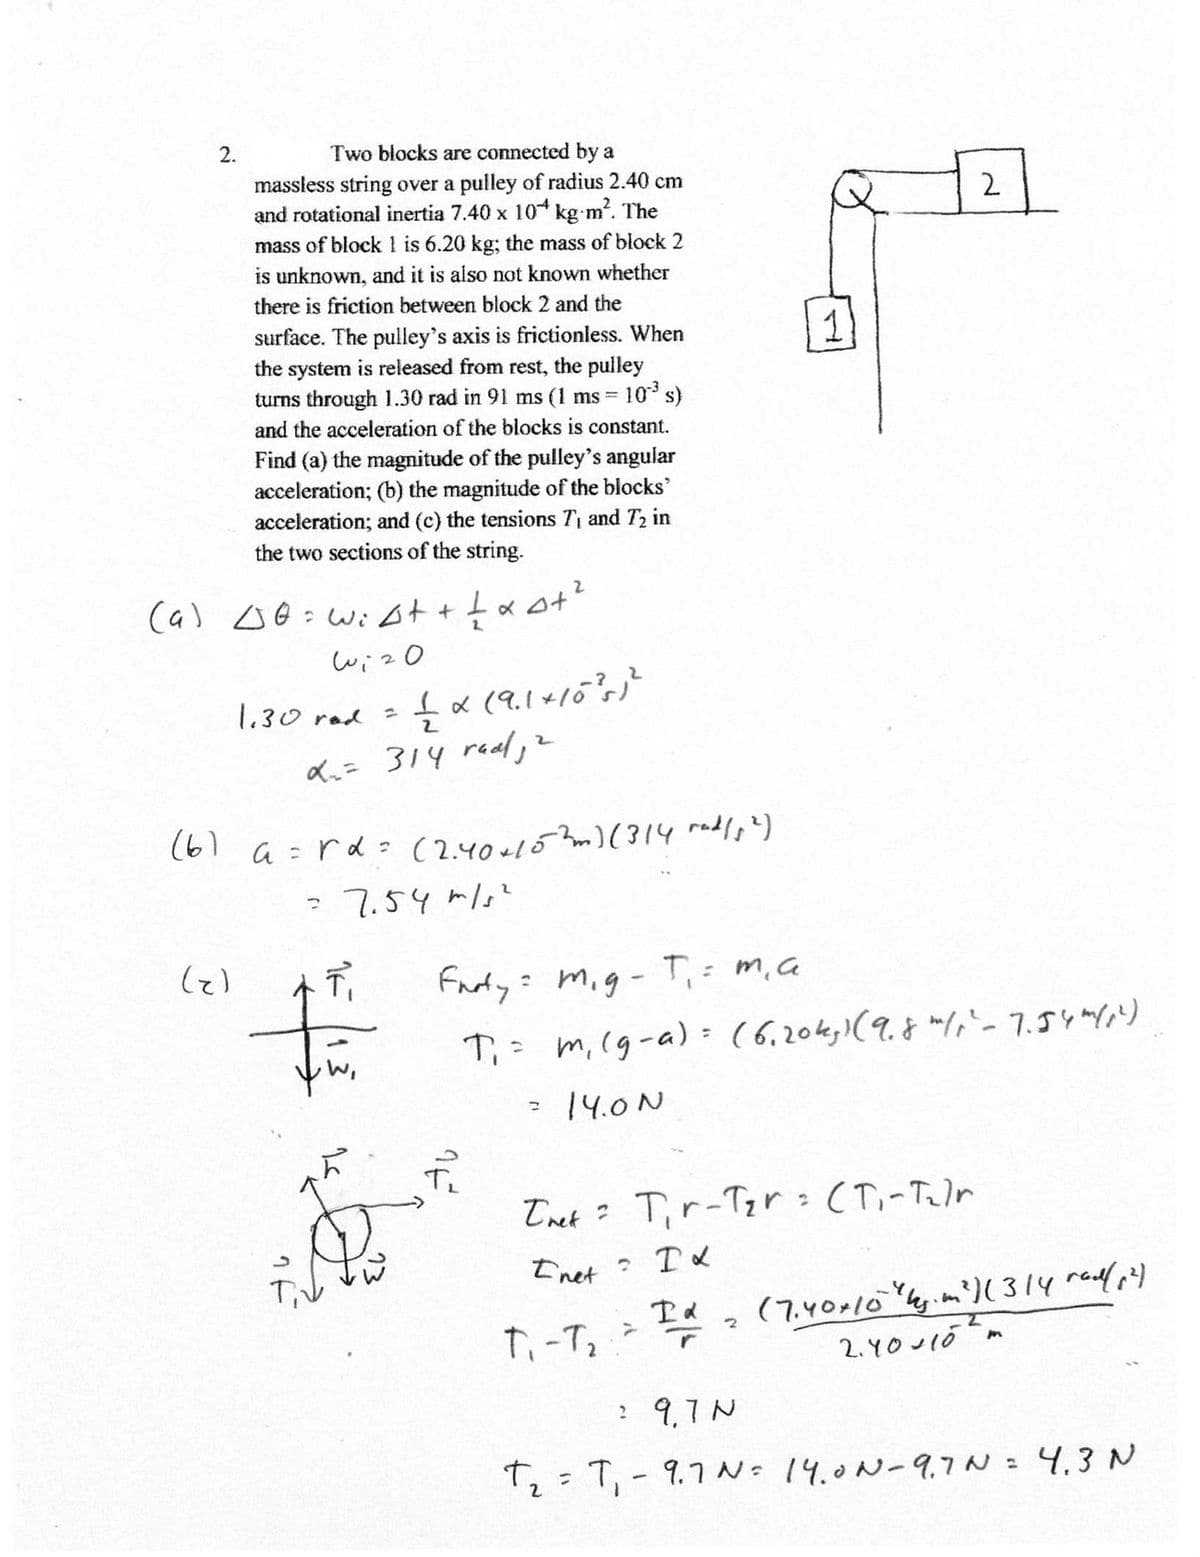 2. Two blocks are connected by a
massless string over a pulley of radius 2.40 cm
and rotational inertia 7.40 x 10⁻⁴ kg·m². The
mass of block 1 is 6.20 kg; the mass of block 2
is unknown, and it is also not known whether
there is friction between block 2 and the
surface. The pulley's axis is frictionless. When
the system is released from rest, the pulley
turns through 1.30 rad in 91 ms (1 ms = 10⁻³ s)
and the acceleration of the blocks is constant.
Find (a) the magnitude of the pulley's angular
acceleration; (b) the magnitude of the blocks'
acceleration; and (c) the tensions T₁ and T₂ in
the two sections of the string.
2
1
(a) Δθ = ωᵢ Δt + ½ α Δt²
ωᵢ = 0
1.30 rad = ½ α (9.1×10⁻²s)²
α = 314 rad/s²
(b) a = rα = (2.40×10⁻²m)(314 rad/s²)
= 7.54 m/s²
(c) T⃗₁ Fnety = m₁g - T₁ = m₁a
W⃗₁ T₁ = m₁(g-a) = (6.20kg)(9.8 m/s² - 7.54 m/s²)
= 14.0 N
h⃗ T⃗₂
T⃗₁ W⃗ τnet = T₁r - T₂r = (T₁-T₂)r
τnet = Iα
T₁ - T₂ = Iα/r = (7.40×10⁻⁴kg·m²)(314 rad/s²)
2.40×10⁻² m
= 9.7 N
T₂ = T₁ - 9.7 N = 14.0 N - 9.7 N = 4.3 N